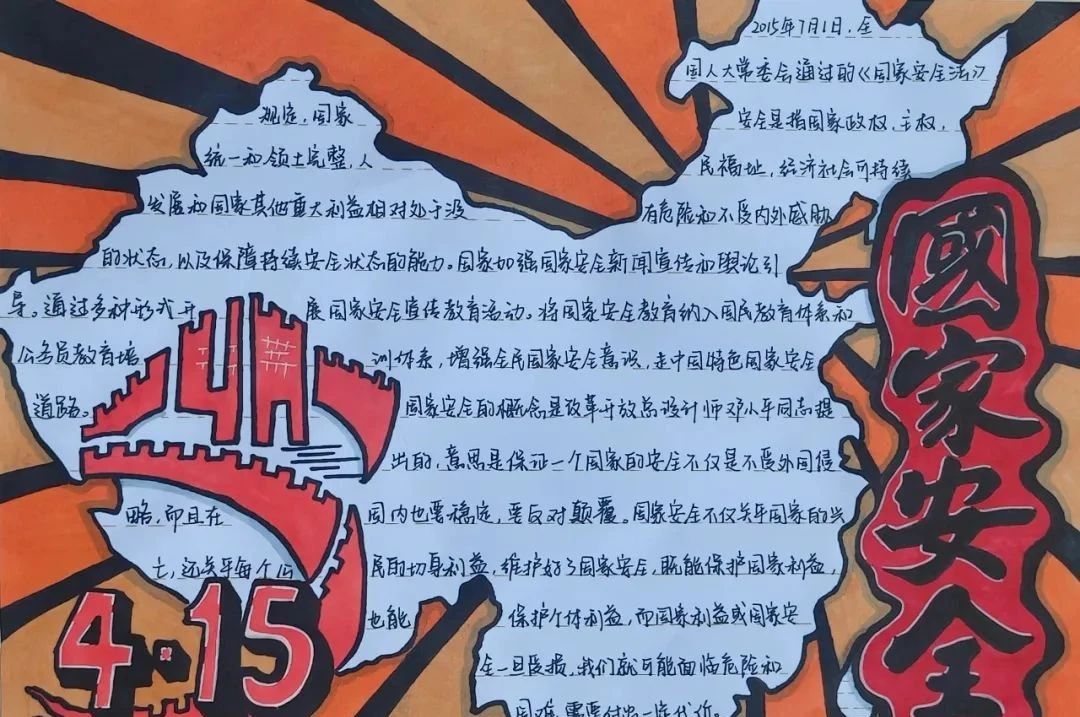 2015年7月1日，全
国人大常委会通过的《国家安全法》
规定，国家 安全是指国家政权、主权、
统一和领土完整、人 民福址、经济社会可持续
发展和国家其他重大利益相对处于没 有危险和不受内外威胁
的状态，以及保障持续安全状态的能力。国家加强国家安全新闻宣传和舆论引
导。通过多种形式开 展国家安全宣传教育活动。将国家安全教育纳入国民教育体系和
公务员教育培 训体系，增强全民国家安全意识，走中国特色国家安全
道路。 国家安全的概念是改革开放总设计师邓小平同志提
出的，意思是保证一个国家的安全不仅是不受外国侵
略，而且在 国内也要稳定，要反对颠覆。国家安全不仅关乎国家的兴
亡，还关乎每个公 民的切身利益，维护好了国家安全，既能保护国家利益，
也能 保护个体利益，而国家利益或国家安
全一旦受损，我们就可能面临危险和
困难，需要付出一定代价。
4·15
國家安全